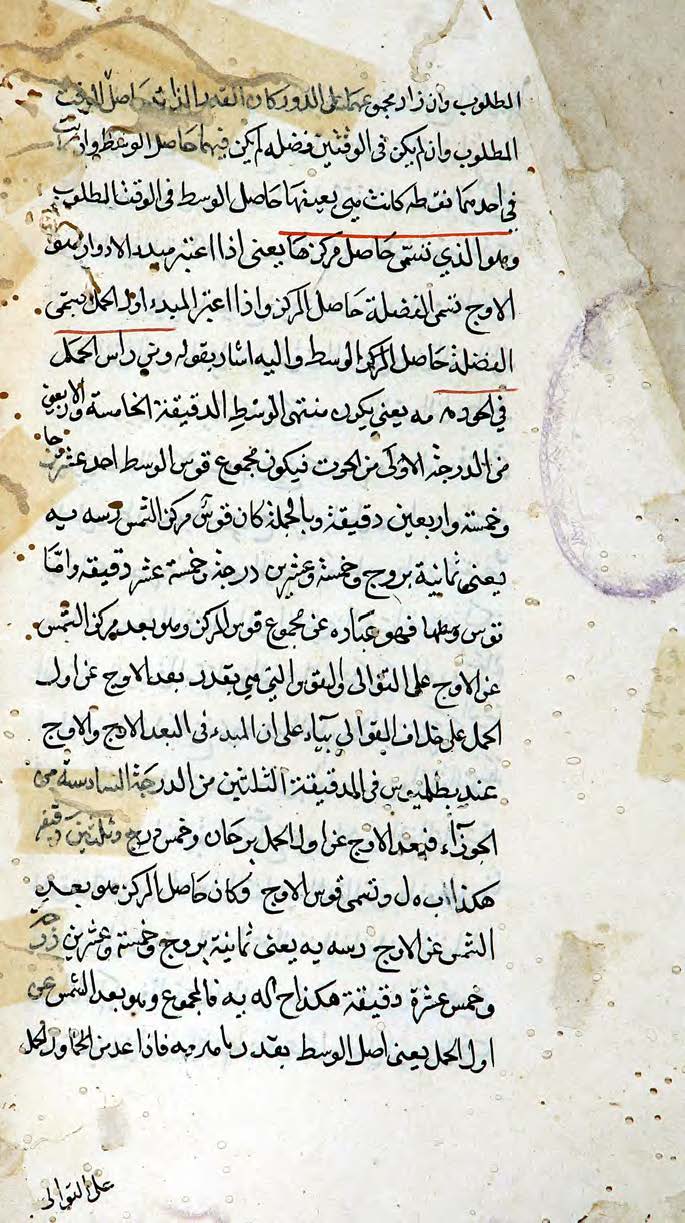 المطلوب وان زاد مجموعهما على الدور كان القدر الزائد حاصل الوقت
المطلوب وان لم يكن في الوقتين فضله لم يكن فيهما حاصل الوسط وان
في احدهما نقطه كانت هي بعينها حاصل الوسط في الوقت المطلوب
وهو الذي تسمى حاصل مركزها يعنى اذا اعتبر مبدء الادوار هو
الاوج تسمى الفضلة حاصل المركز واذا اعتبر المبدء اول الحمل تسمى
الفضلة حاصل الوسط واليه اشار بقوله ومن راس الحمل
في الحوت مه يعنى يكون منتهى الوسط الدقيقة الخامسة والاربعين
من الدرجة الاولى من الحوت فيكون مجموع قوس الوسط احد عشر
وخمسة واربعين دقيقة وبالجملة كان قوس مركز الشمس رسه يه
يعنى ثمانية بروج وخمسة وعشرين درجة وخمسة عشر دقيقه واما
قوس وسطها فهو عباره عن مجموع قوس المركز وهو بعد مركز الشمس
عن الاوج على التوالى والقوس التي هي بقدر بعد الاوج عن اول
الحمل على خلاف التوالي بناء على ان المبدء في البعد الاوج والاوج
عند بطلميوس في الدقيقة الثلثين من الدرجة السادسة من
الجوزاء فبعد الاوج عن اول الحمل برجان وخمس درج وثلثين دقيقه
هكذا ب ه ل وتسمى قوس الاوج وكان حاصل المركز هو بعد
الشمس عن الاوج رسه يه يعنى ثمانية بروج وخمسة وعشرين درجة
وخمس عشرة دقيقة هكذا ح اله يه فالمجموع وهو بعد الشمس عن
اول الحمل يعنى اصل الوسط بقدر مه فاذا عد من اول الحمل
على التوالى